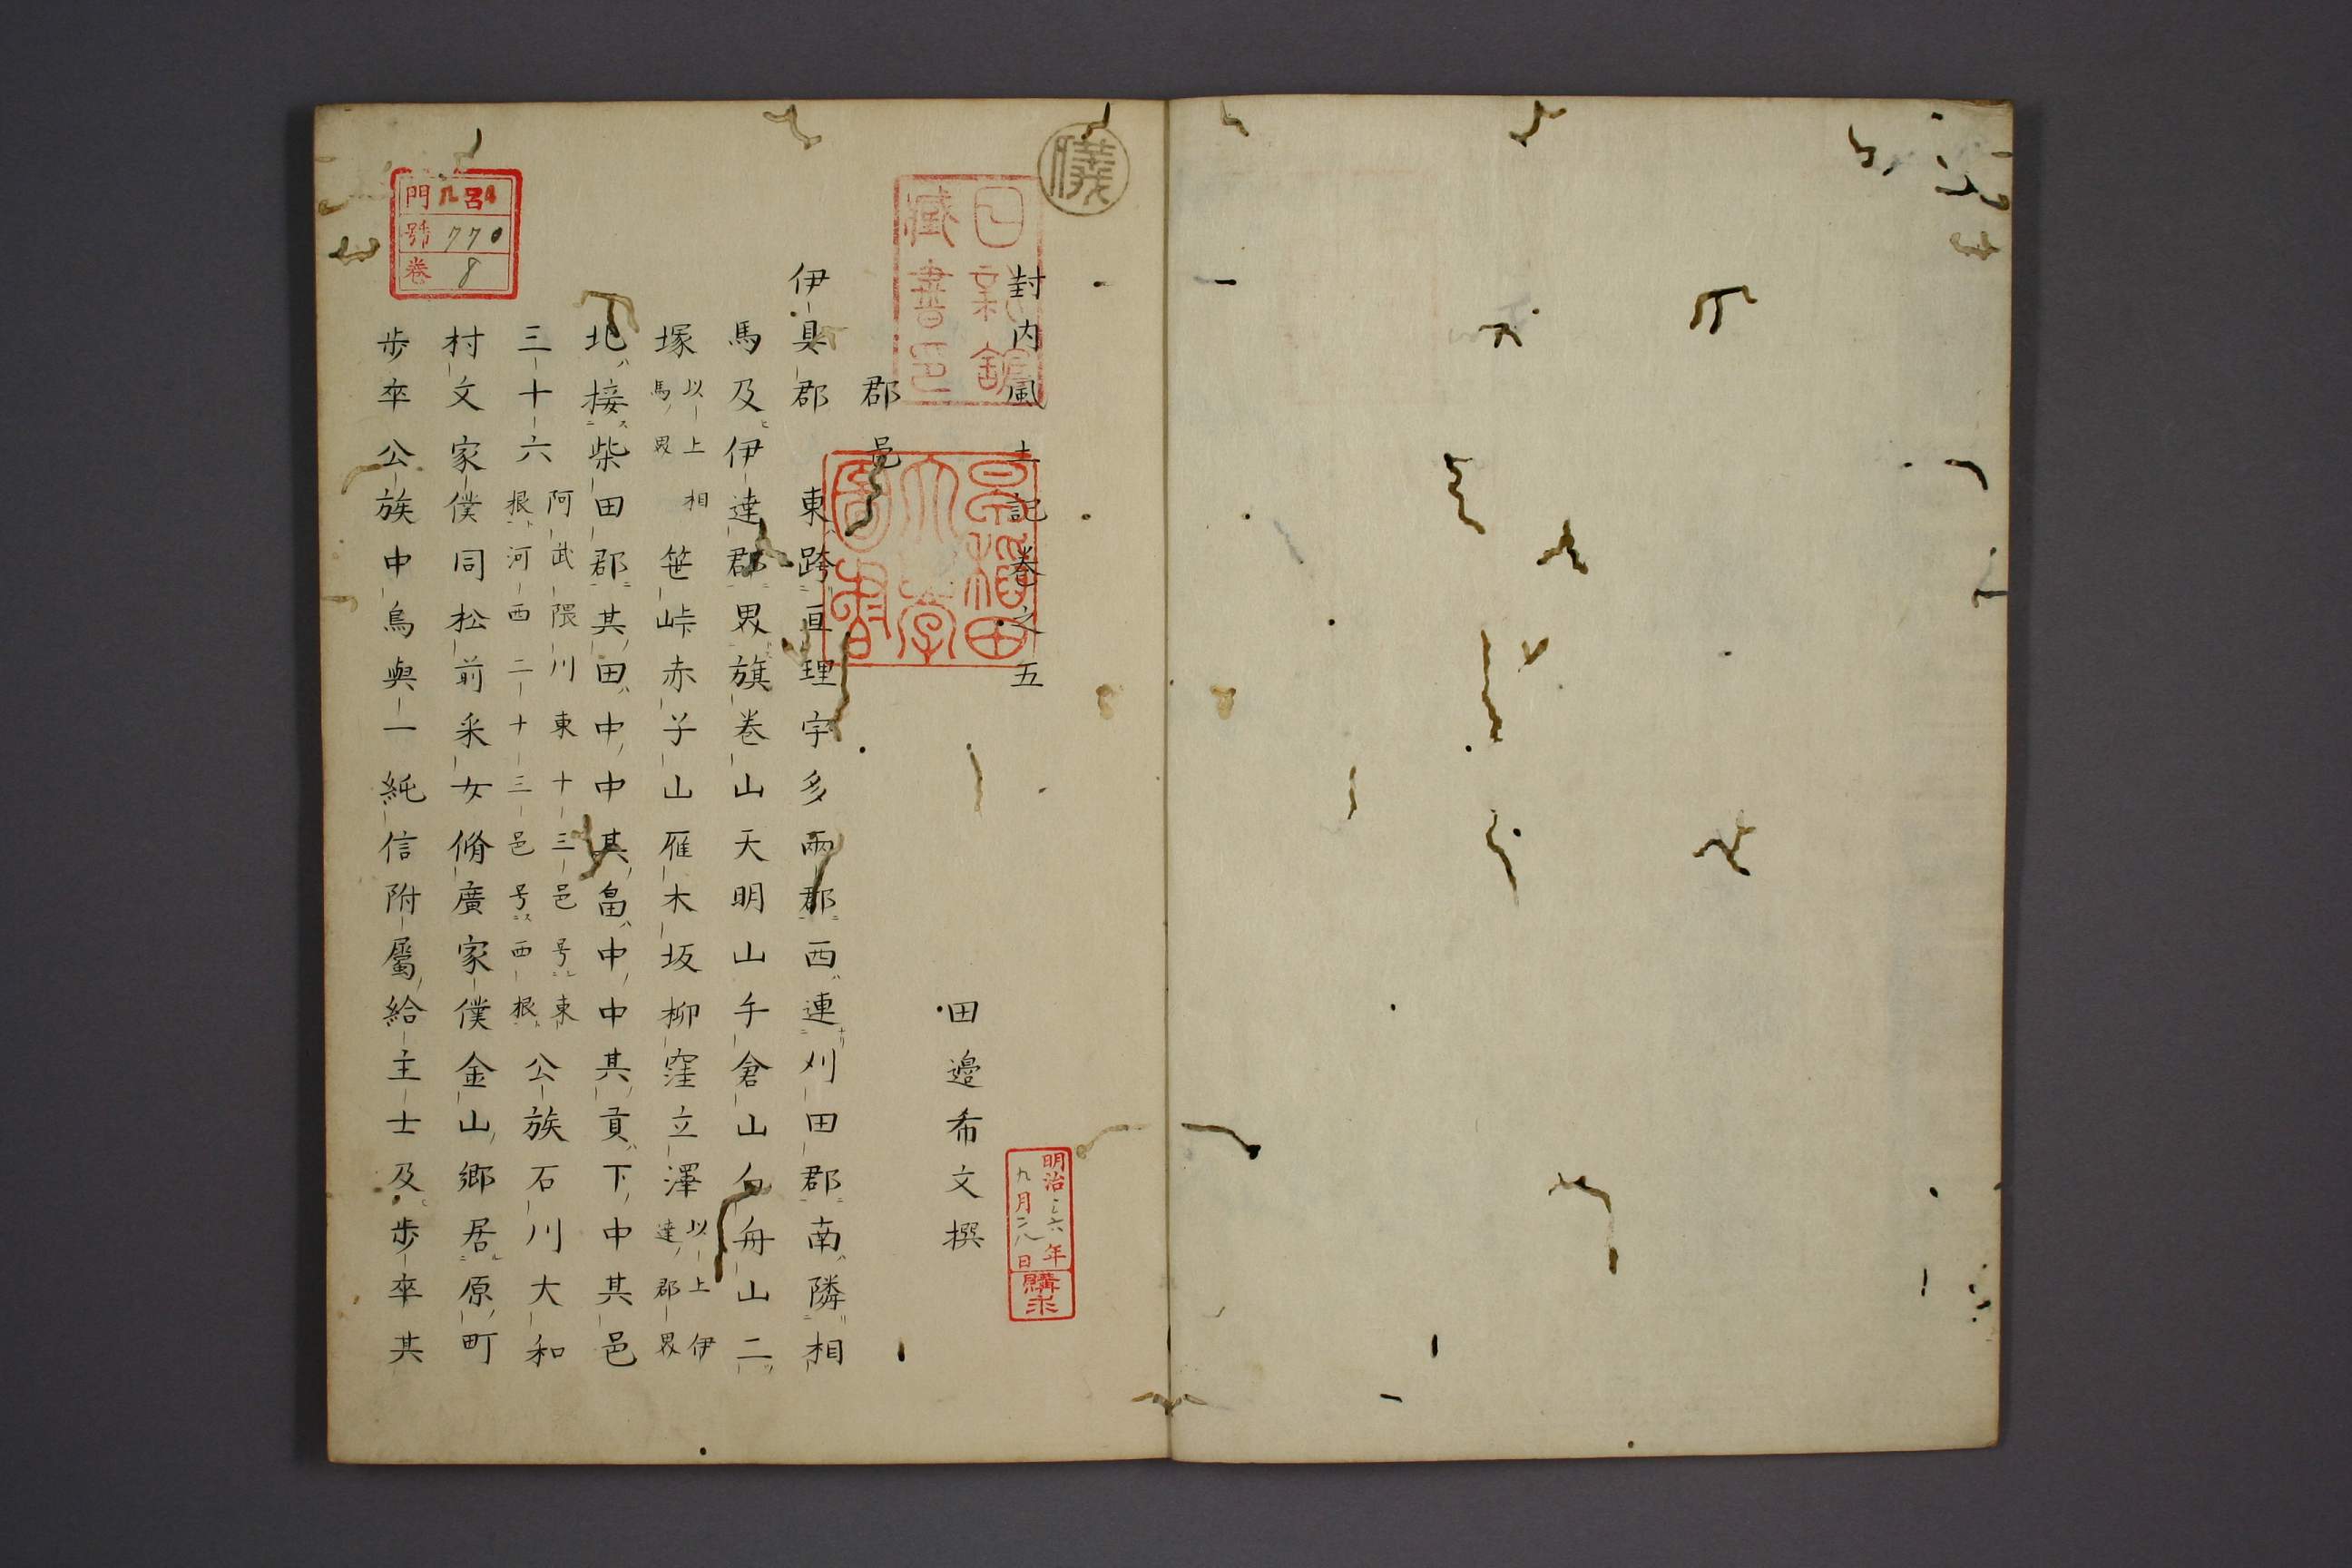 封内風土記卷之五
田邉希文撰
郡邑
伊具郡
東跨亘理宇多兩郡西連刈田郡南隣相
馬及伊達郡界旗卷山天明山手倉山白舟山二
塚以上相馬界笹峠赤子山雁木坂柳窪立澤以上伊達郡界
北接柴田郡其田中中其畠中中其貢下中其邑
三十六阿武隈川東十三邑号東根河西二十三邑号西根公族石川大和
村文家僕同松前采女脩廣家僕金山郷居原町
歩卒公族中島與一純信附屬給主士及歩卒其
儀
日新舘藏書邑
早稲田大学圖書
明治三六年九月二八日購求
門
號 770
卷 8